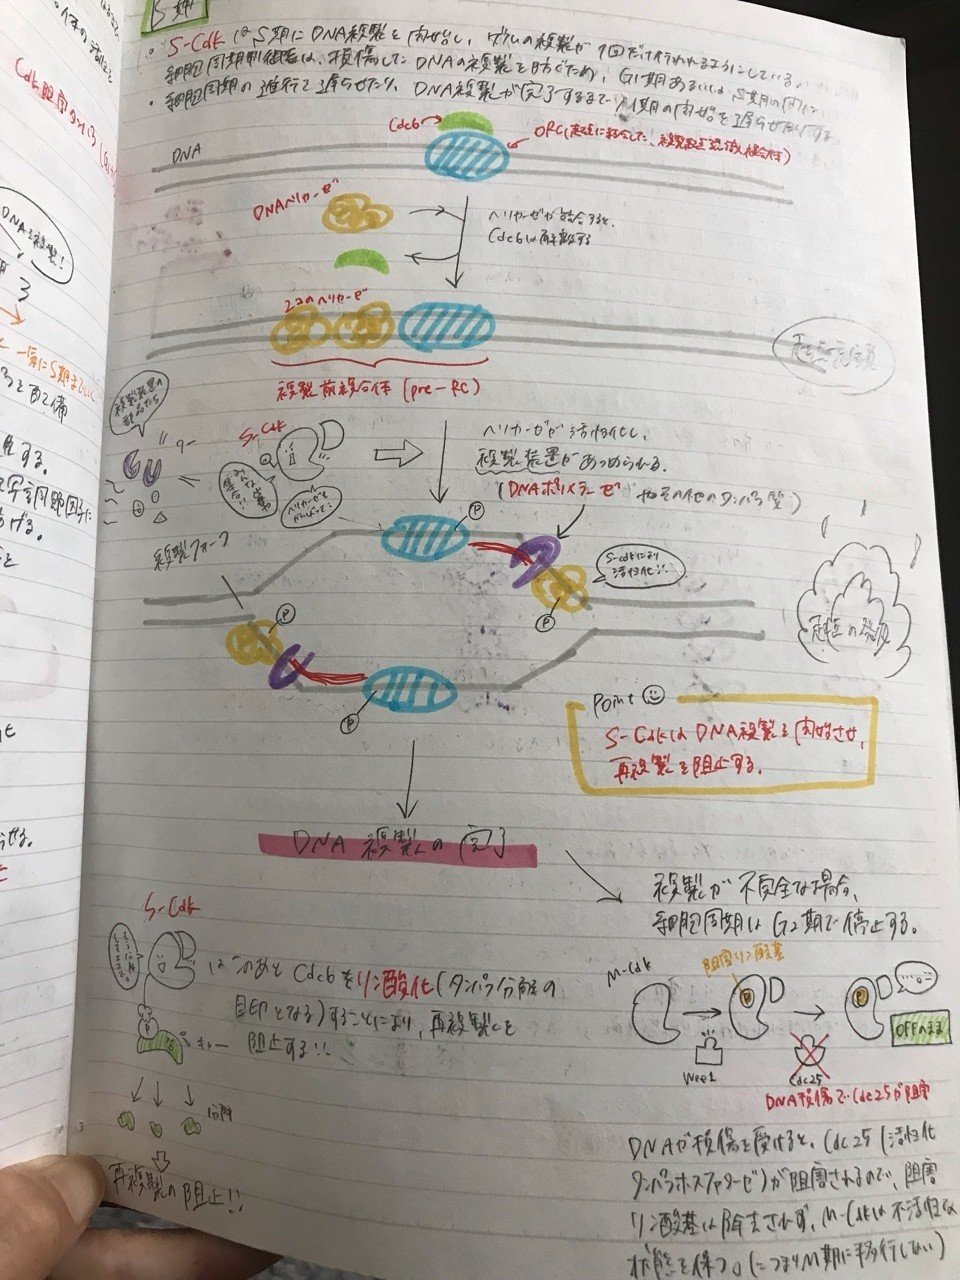 S期
・S-CdkはS期にDNA複製を開始し、ゲノムの複製が1回だけ行われるようにしている。
・細胞周期制御系は、損傷したDNAの複製を防ぐため、G1期あるいはS期の間に、
細胞周期の進行を遅らせたり、DNA複製が完了するまでM期の開始を遅らせたりする。
Cdc6
ORC(起点に結合した、複製起点認識複合体)
DNA
DNAヘリカーゼ
ヘリカーゼが結合すると
Cdc6は解離する
2コのヘリカーゼ
複製前複合体 (pre-RC)
複製装置の
S-Cdk
ヘリカーゼが活性化し、
複製装置があつめられる。
(DNAポリメラーゼやその他のタンパク質)
P
複製フォーク
S-Cdkにより
活性化!!
P
P
P
起点の発火
Point
S-CdkはDNA複製を開始させ、
再複製を阻止する。
DNA複製の完了
複製が不完全な場合、
細胞周期はG2期で停止する。
S-Cdk
はこのあとCdc6をリン酸化(タンパク分解の
目印となる)することにより、再複製を
阻止する!!
P
キャー
分解
再複製の阻止!!
M-Cdk
阻害リン酸基
P
P
Wee1
Cdc25
OFFのまま
DNA損傷でCdc25が阻害
DNAが損傷を受けると、Cdc25(活性化
タンパクホスファターゼ)が阻害されるので、阻害
リン酸基は除去されず、M-Cdkは不活性な
状態を保つ。(=つまりM期に移行しない)
DNAを複製!
一気にS期まで